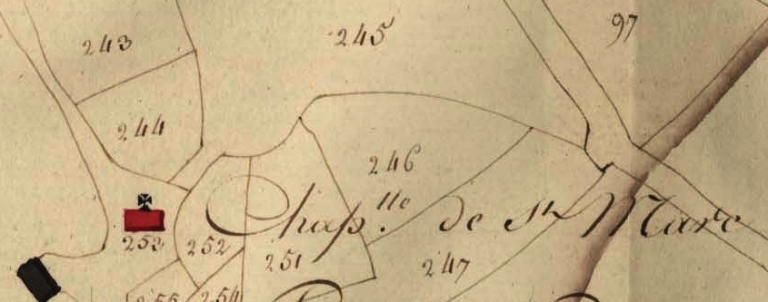 97
245
243
244
246
Chap.lle de St Marc
253
252
251
247
255
254